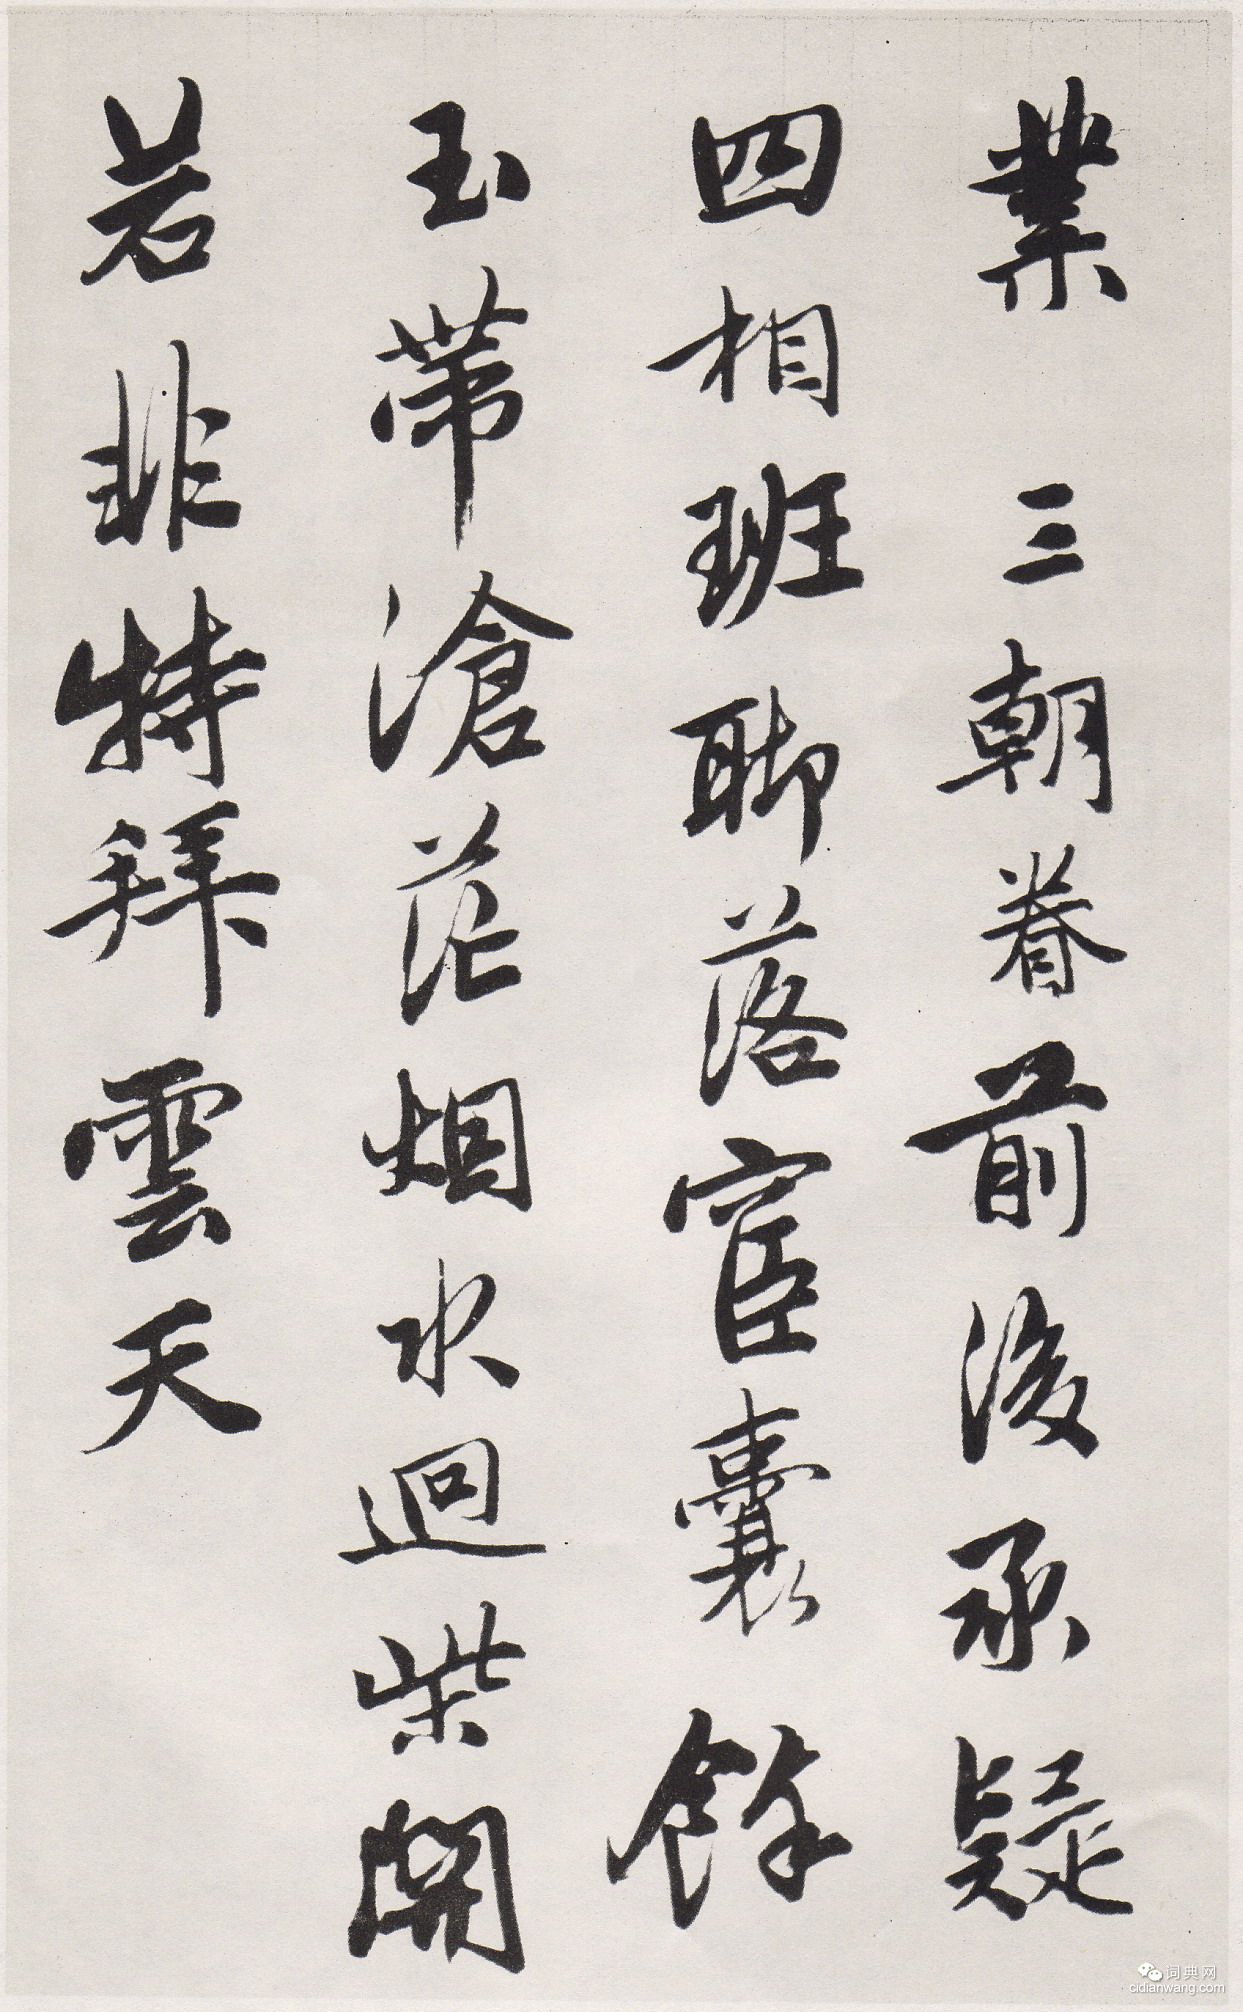 業 三朝眷前後承疑
四相班聊落宦囊餘
玉帶滄茫烟水迥柴關
若非特拜雲天
词典网
cidianwang.com